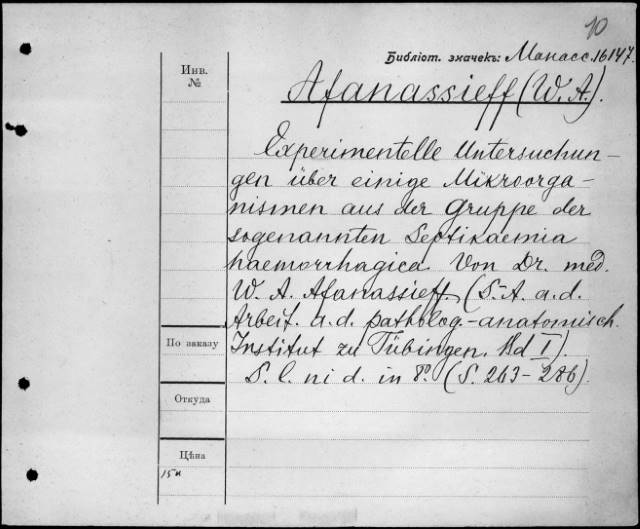 10
Библіот. значекъ: Манасс. 16147.
Инв.
№
Afanassieff (W. A.).
Experimentelle Untersuchun-
gen über einige Mikroorga-
nismen aus der Gruppe der
sogenannten Septikaemia
haemorrhagica. Von Dr. med.
W. A. Afanassieff. (S. A. a. d.
Arbeit. a. d. patholog.-anatomisch.
По заказу
Institut zu Tübingen. Bd I).
S. l. ni d. in 8º. (S. 263-286).
Откуда
Цѣна
15 к